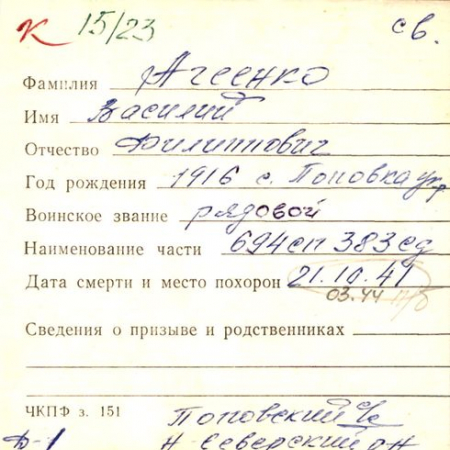 К 15/23 св.
Фамилия Агеенко
Имя Василий
Отчество Филиппович
Год рождения 1916 с. Поповка
Воинское звание рядовой
Наименование части 694сп 383сд
Дата смерти и место похорон 21.10.41
03.44 п/б
Сведения о призыве и родственниках
ЧКПФ з. 151 Поповский с/с
Ф-1 Н Северский р-н